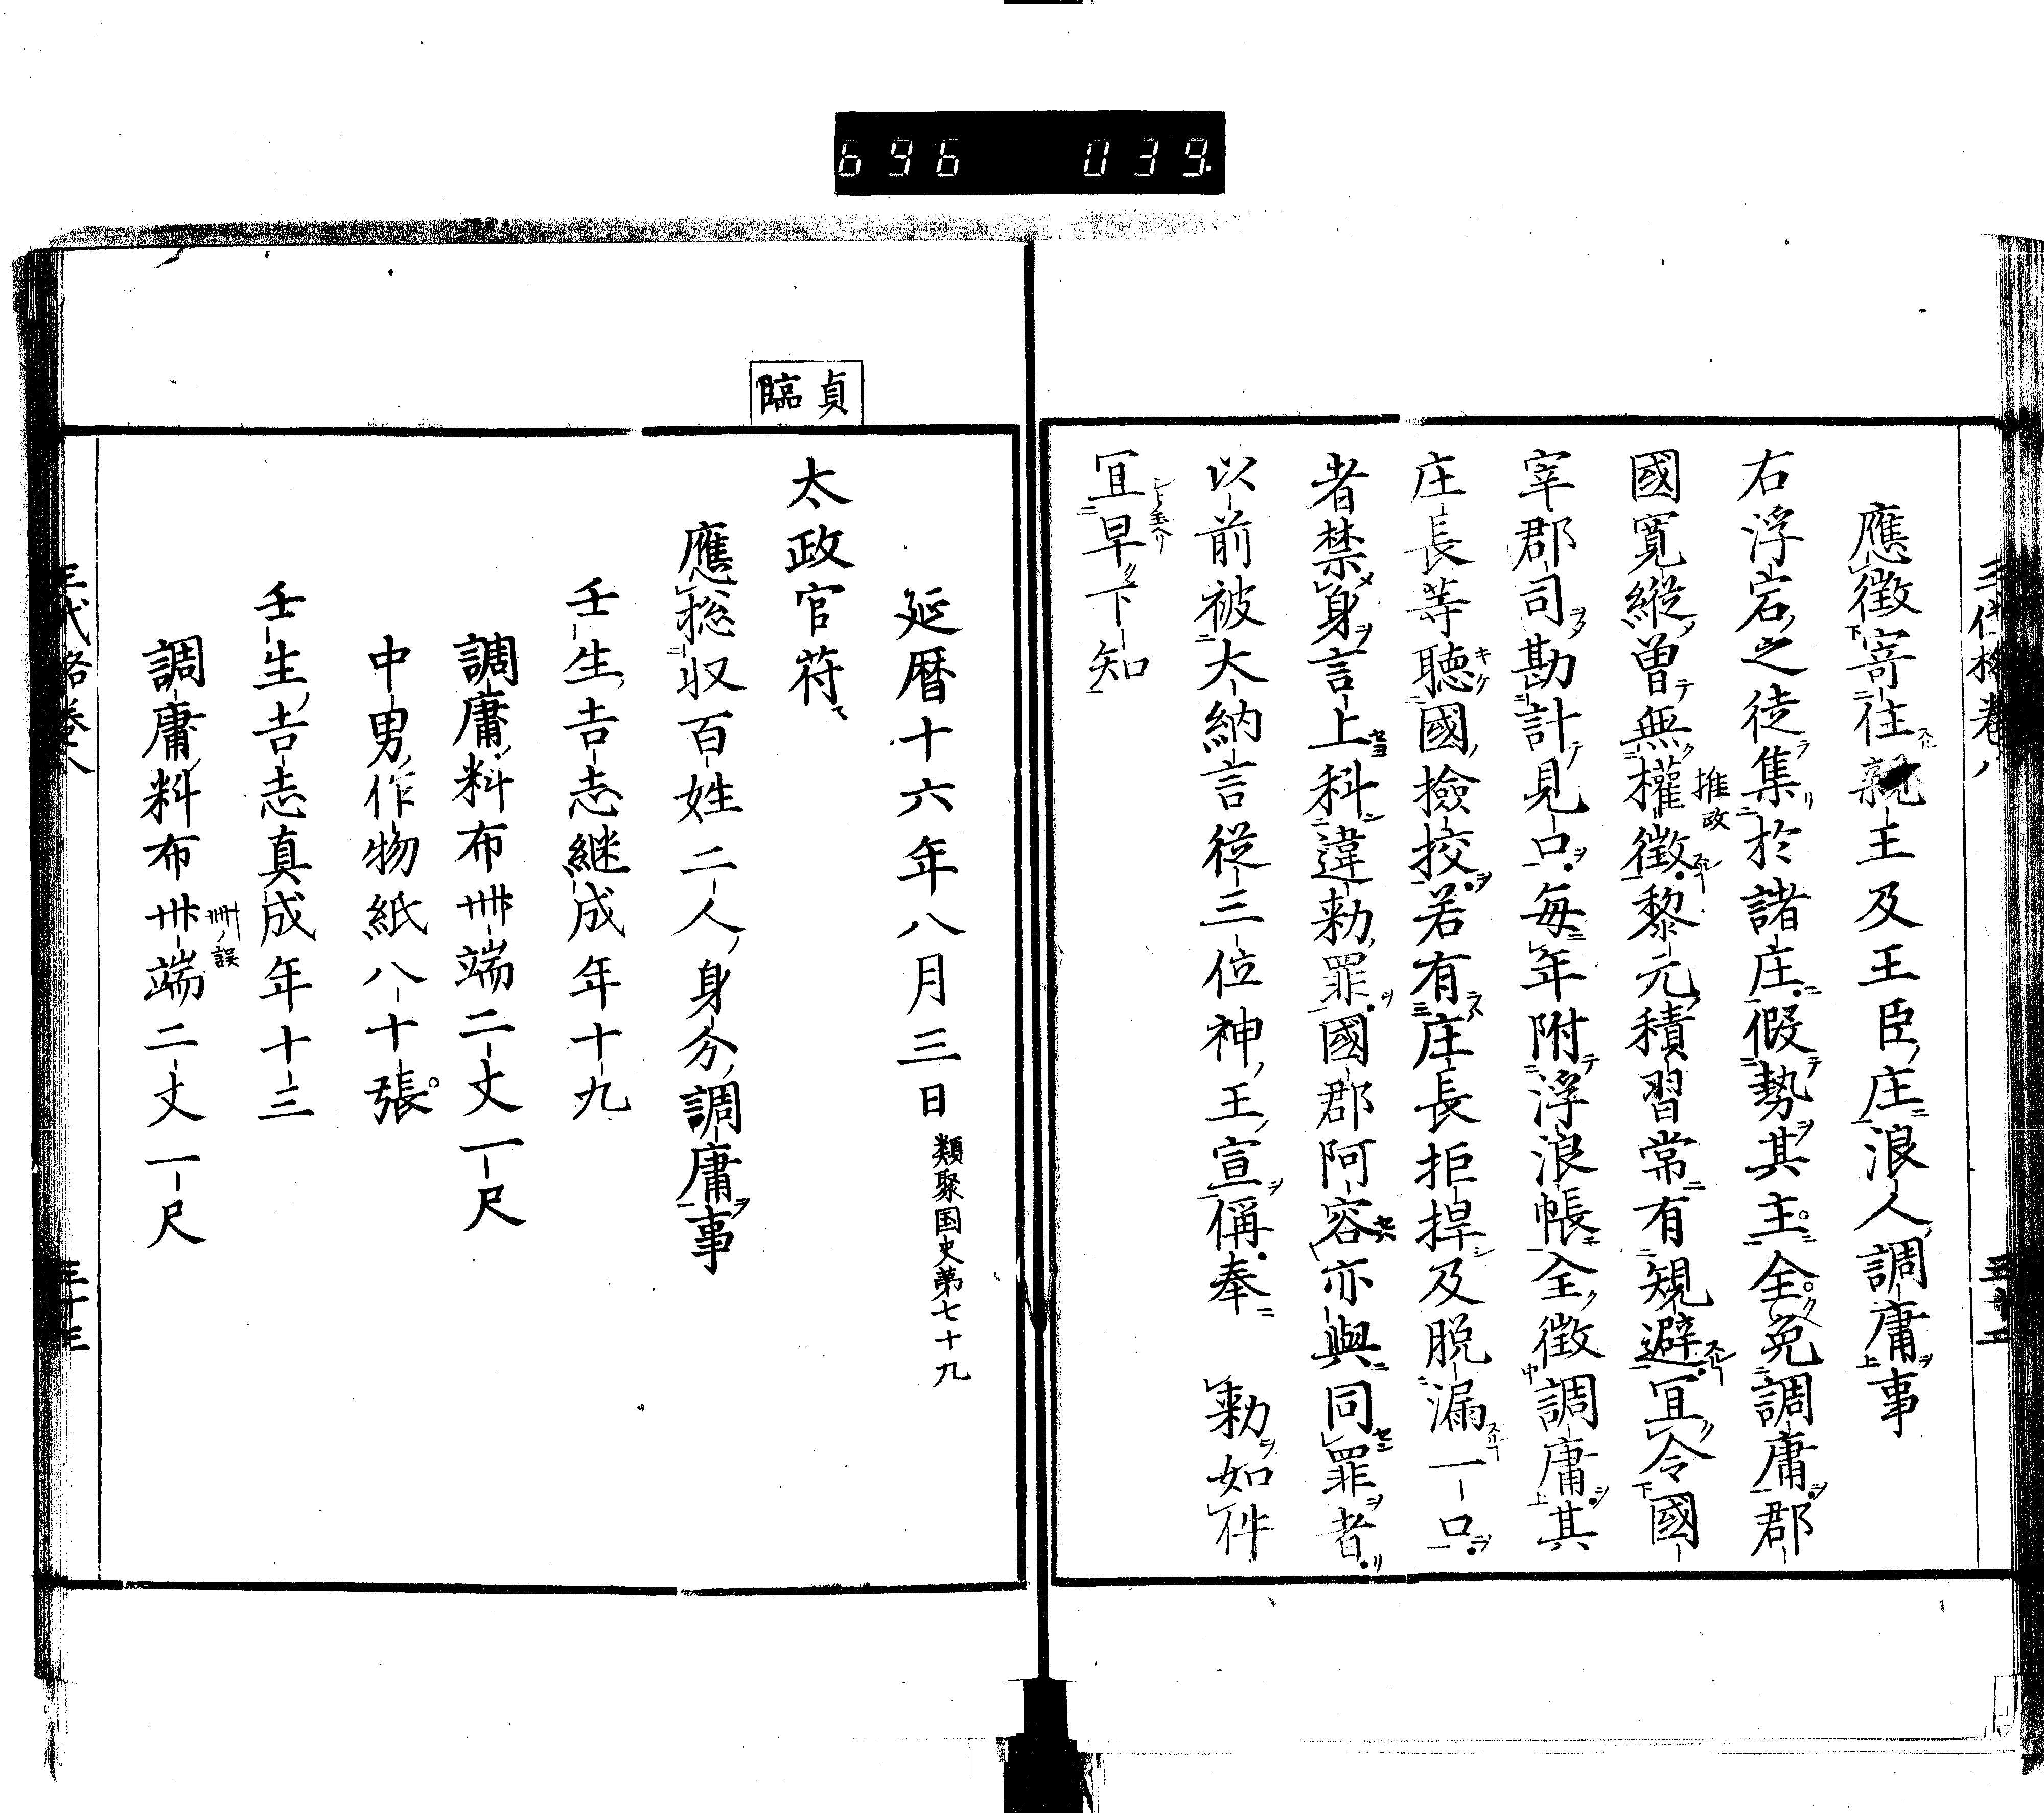 696 039
應徵寄往親王及王臣庄浪人調庸事
右浮宕之徒集於諸庄假勢其主全免調庸郡
國寛縱曾無權徵黎元積習常有規避冝令國
推改
宰郡司勘計見口毎年附浮浪帳全徵調庸其
庄長等聴國撿挍若有庄長拒捍及脱漏一口
者禁身言上科違勅罪國郡阿容亦與同罪者
以前被大納言從三位神王宣偁奉　勅如件
冝早下知
延暦十六年八月三日 類聚国史第七十九
貞臨
太政官符
應捴収百姓二人身分調庸事
壬生吉志継成年十九
調庸料布卌端二丈一尺
中男作物紙八十張
壬生吉志真成年十三
調庸料布卌端二丈一尺
誤
三代格巻八
三十三